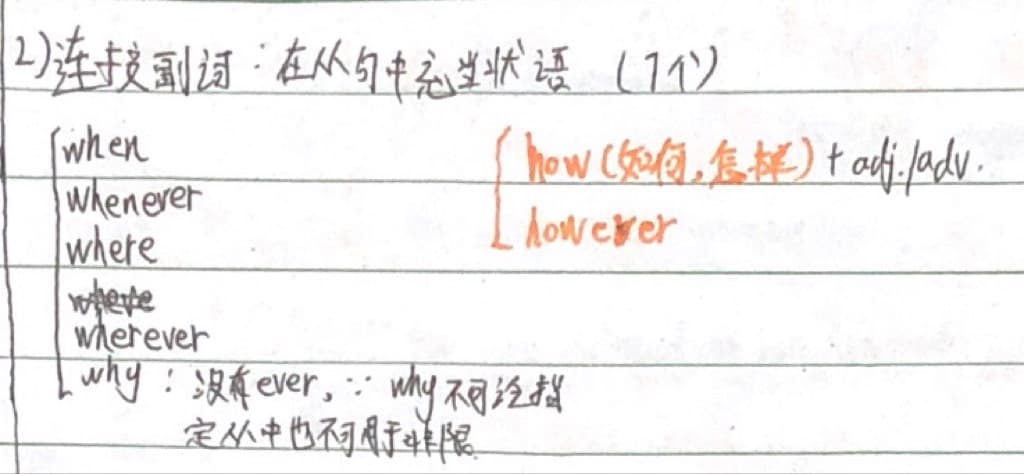 2)连接副词：在从句中充当状语（7个）
when
whenever
where
wherever
why：没有ever，∵why不可论
定从中也不可用于非限
how(如何，怎样) + adj./adv.
however